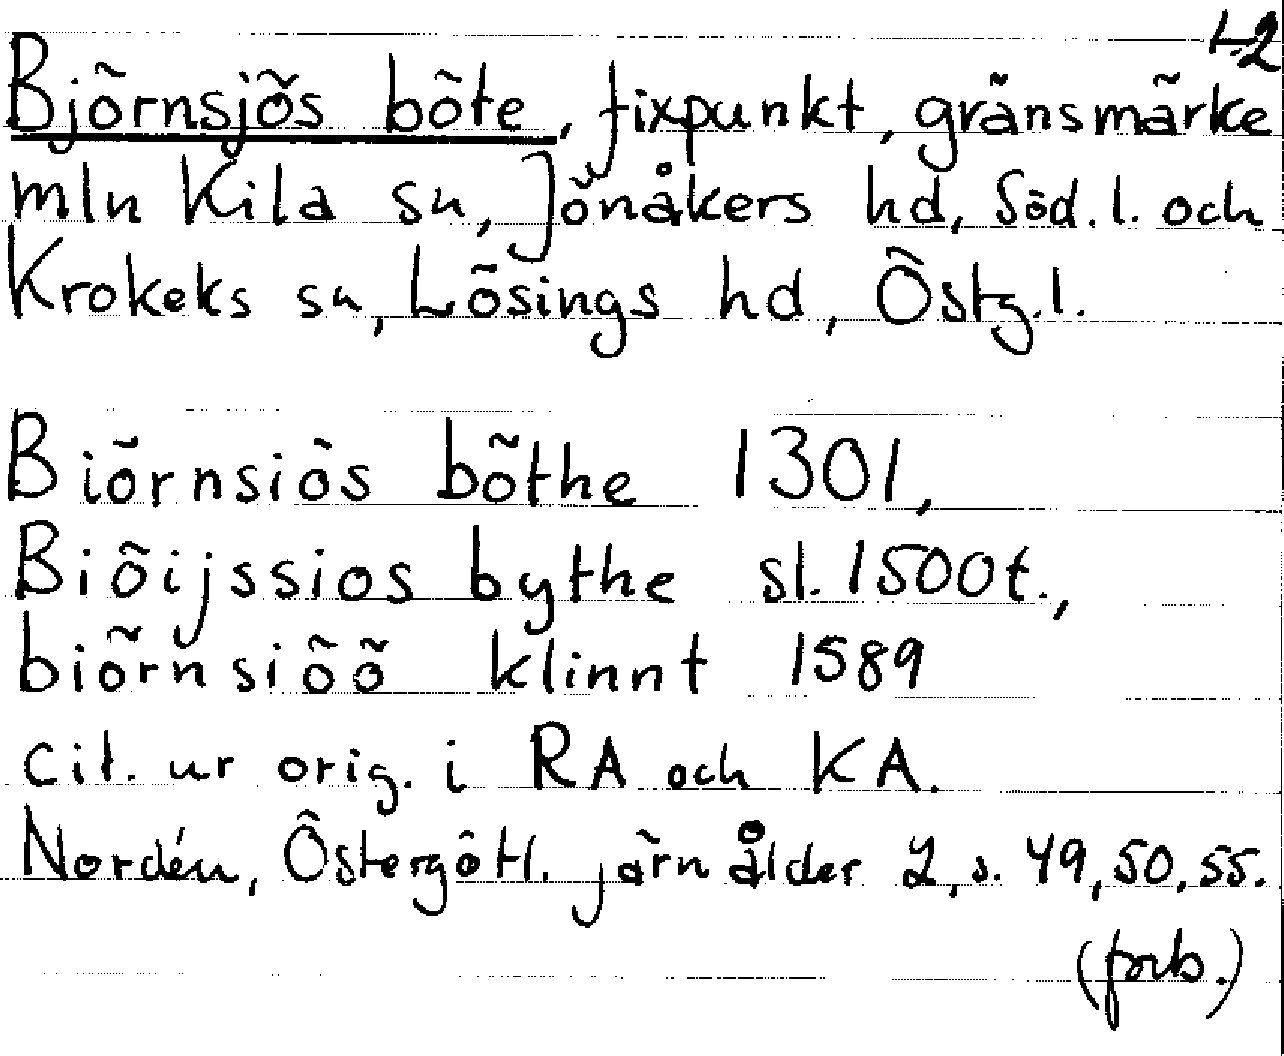 L2
Björnsjös böte, fixpunkt, gränsmärke
mln Kila sn, Jönåkers hd, Söd.l. och
Krokeks sn, Lösings hd, Östg.l.
Biörnsiös böthe 1301,
Biöijssios bythe sl. 1500t.,
biörnsiöö klinnt 1589
cit. ur orig. i RA och KA.
Nordén, Östergötl. järnålder 2, s. 49, 50, 55.
(forb.)